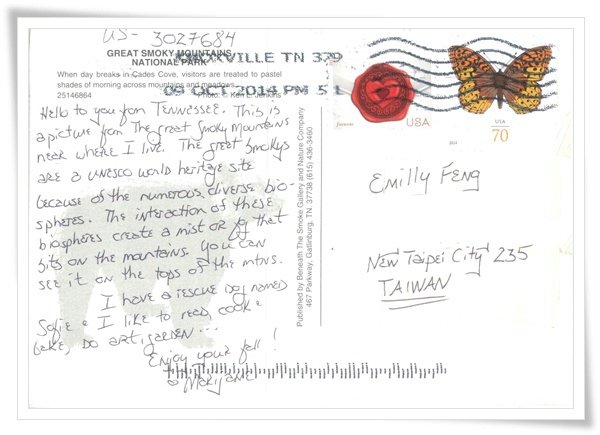 US-3027684
GREAT SMOKY MOUNTAINS
NATIONAL PARK
When day breaks in Cades Cove, visitors are treated to pastel
shades of morning across mountains and meadows.
25146864 Photo: © Ken L. Jenkins
KNOXVILLE TN 379
09 OCT 2014 PM 5 L
forever
USA
2014
USA
70
Hello to you from Tennessee. This is
a picture from The great Smoky Mountains
near where I live. The great Smokys
are a UNESCO world heritage site
because of the numerous, diverse bio-
spheres. The interaction of these
biospheres create a mist or fog that
sits on the mountains. You can
see it on the tops of the mtns.
I have a rescue dog named
Sofie & I like to read, cook &
bake, do art, garden...
Enjoy your fall!
Maryjane
Published by Beneath The Smoke Gallery and Nature Company
467 Parkway, Gatlinburg, TN 37738 (615) 436-3460
Emilly Feng
New Taipei City 235
TAIWAN